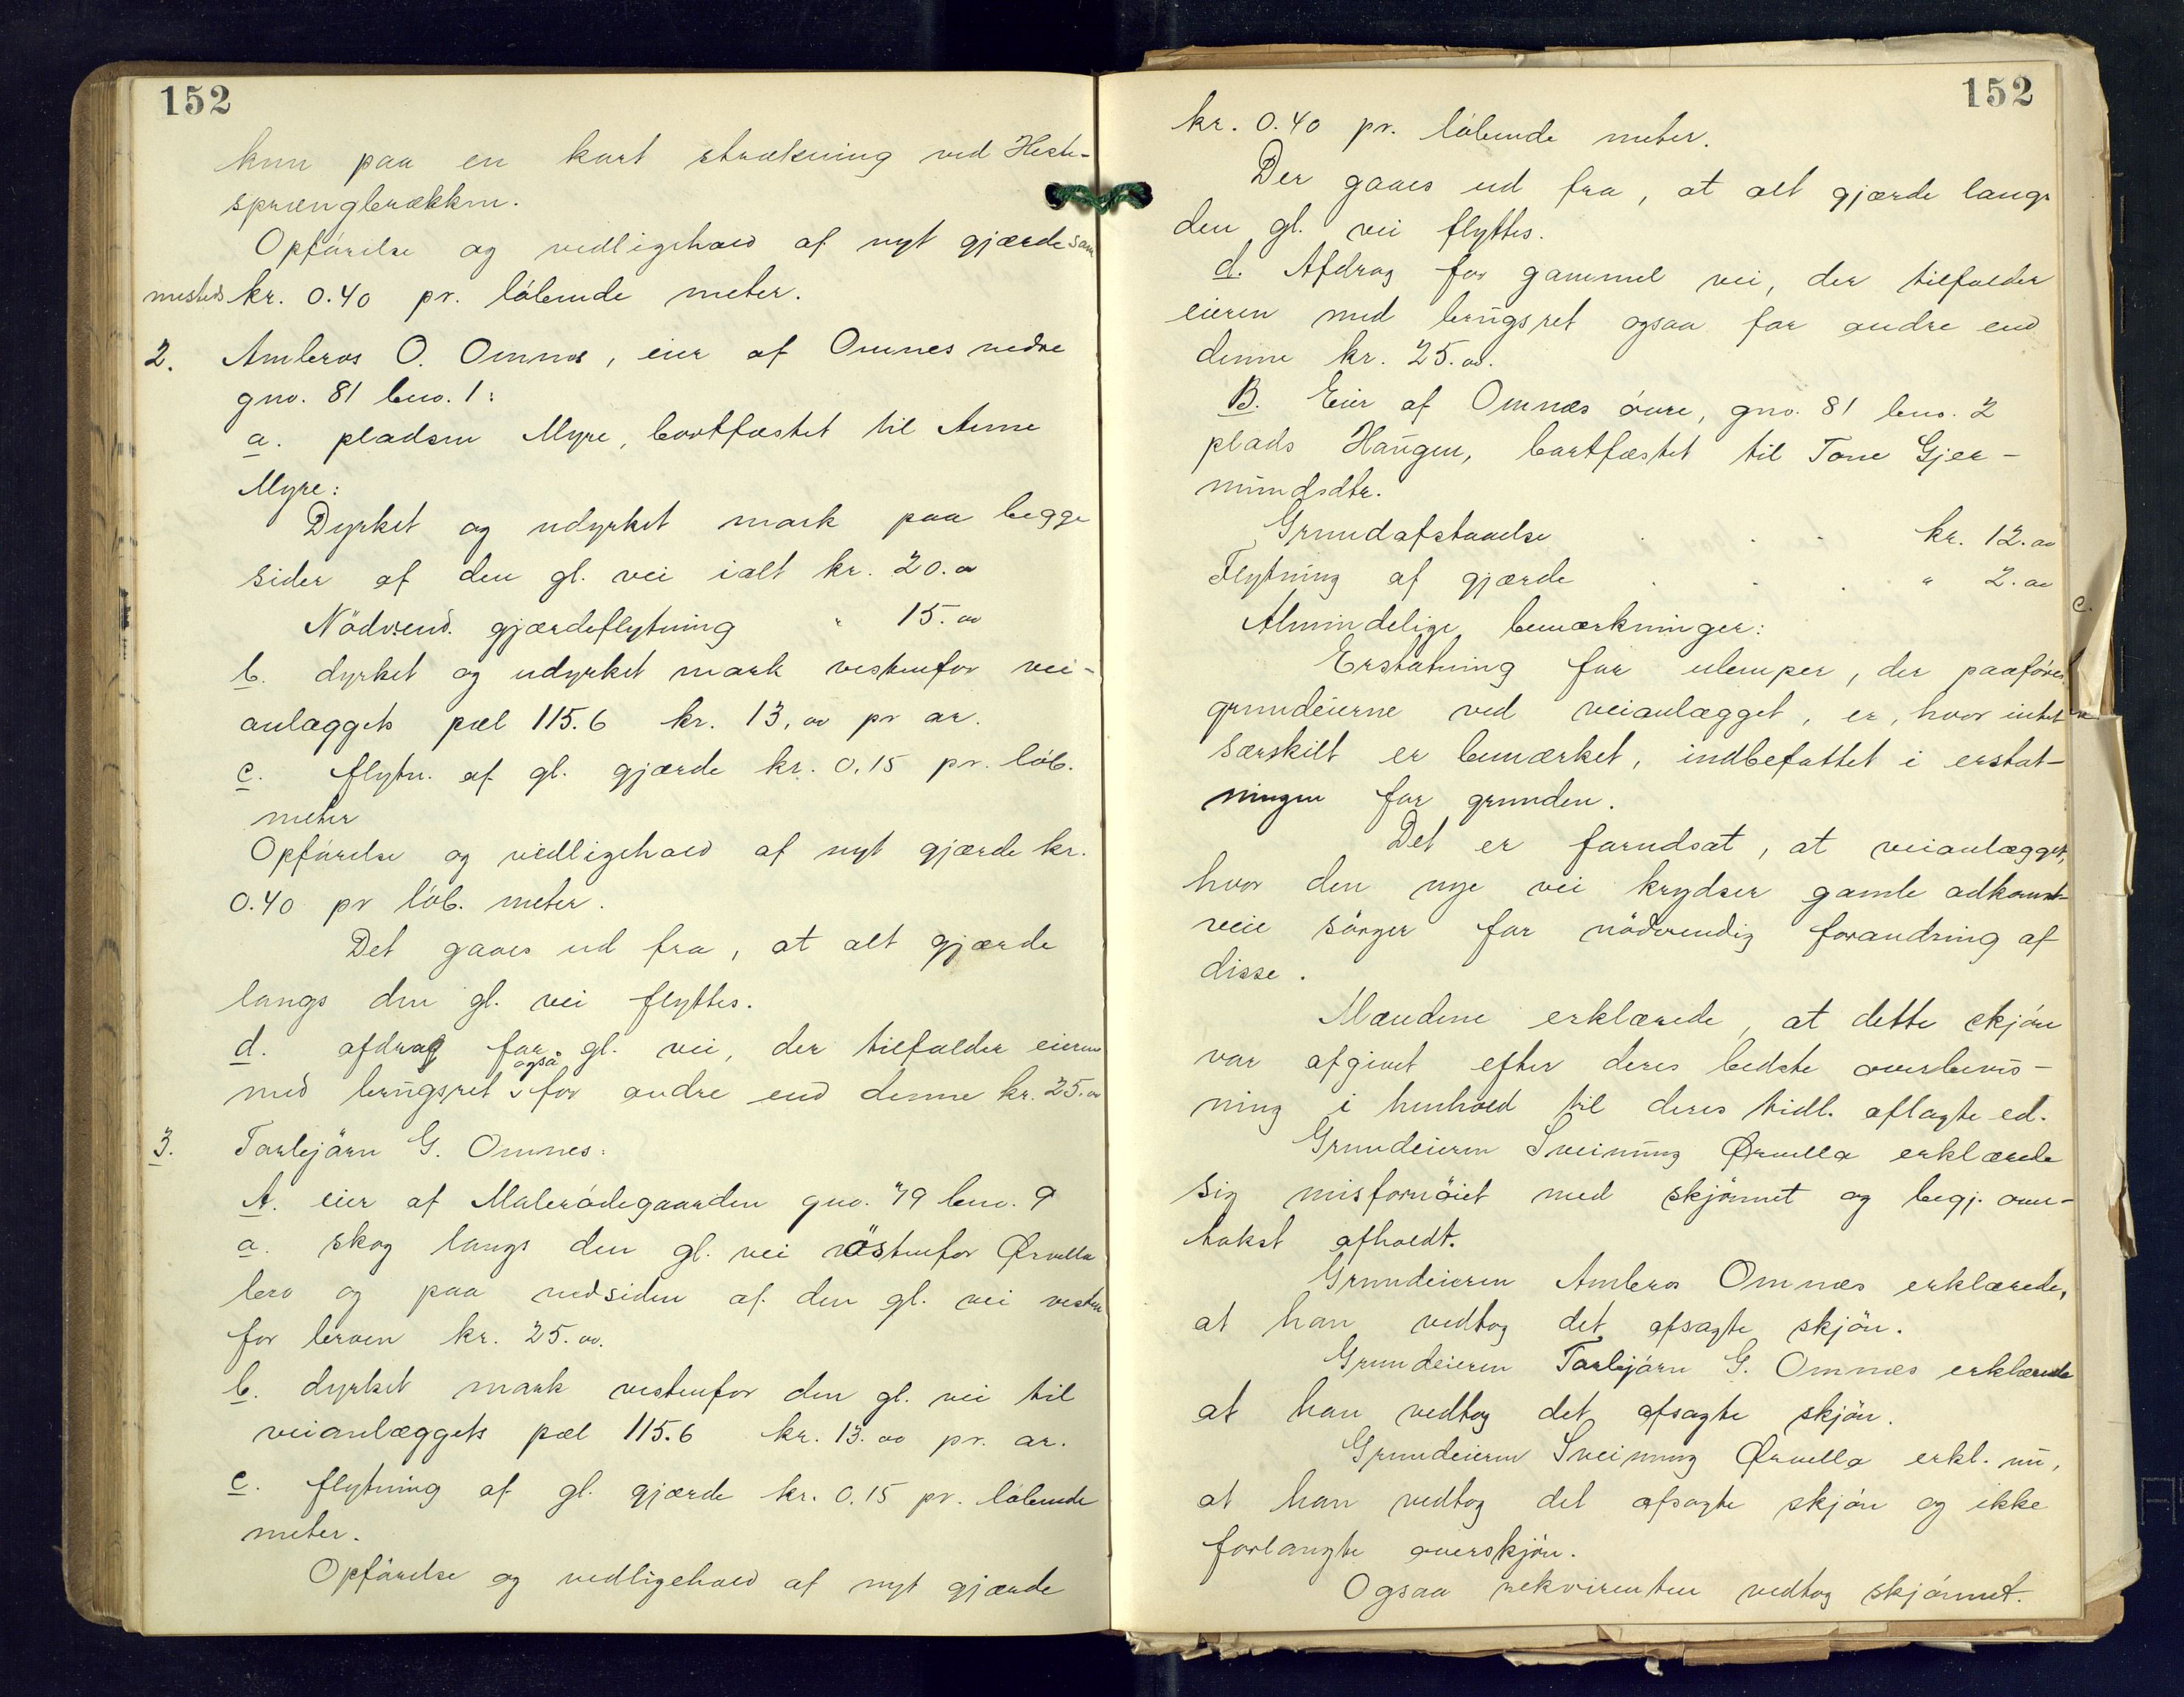 152
kun paa en kort strækning ved Heste-
sprængbrækken.
Opförelse og vedligehold af nyt gjærde sam
mesteds kr. 0.40 pr. löbende meter.
2. Ambros O. Omnes, eier af Omnes nedre
gno. 81 bno. 1:
a. pladsen Myre, bortfæstet til Anne
Myre:
Dyrket og udyrket mark paa begge
sider af den gl. vei ialt kr. 20.oo
Nödvend. gjærdeflytning " 15.oo
b. dyrket og udyrket mark vestenfor vei-
anlæggets pæl 115.6 kr. 13,oo pr ar.
c. flytn. af gl. gjærde kr. 0.15 pr. löb.
meter
Opförelse og vedligehold af nyt gjærde kr.
0.40 pr löb. meter.
Det gaaes ud fra, at alt gjærde
langs den gl. vei flyttes.
d. afdrag for gl. vei, der tilfalder eieren
også
med brugsret for andre end denne kr. 25.oo
3. Torbjörn G. Omnes:
A. eier af Malerödegaarden gno. 79 bno. 9
a. skog langs den gl. vei östenfor Ørvella
bro og paa nedsiden af den gl. vei vesten
for broen kr. 25.oo.
b. dyrket mark vestenfor den gl. vei til
veianlæggets pæl 115.6 kr. 13.oo pr. ar.
c. flytning af gl. gjærde kr. 0.15 pr. löbende
meter.
Opförelse og vedligehold af nyt gjærde
152
kr. 0.40 pr. löbende meter.
Der gaaes ud fra, at alt gjærde langs
den gl. vei flyttes.
d. Afdrag for gammel vei, der tilfalder
eieren med brugsret ogsaa for andre end
denne kr. 25.oo.
B. Eier af Omnæs övre, gno. 81 bno. 2
plads Haugen, bortfæstet til Tone Gjer-
mundsdtr.
Grundafstaaelse . . . kr. 12.oo
Flytning af gjærde . . . " 2.oo
Almindelige bemærkninger:
Erstatning for ulemper, der paaföres
grundeierne ved veianlægget, er, hvor intet
særskilt er bemærket, indbefattet i erstat-
ningen for grunden.
Det er forudsat, at veianlægget,
hvor den nye vei krydser gamle adkomst-
veie sörger for nödvendig forandring af
disse.
Mændene erklærede, at dette skjön
var afgivet efter deres bedste overbevis-
ning i henhold til deres tidl. aflagte ed.
Grundeieren Sveinung Ørvella erklærede
sig misfornöiet med skjönnet og begj. over-
takst afholdt.
Grundeieren Ambros Omnæs erklærede,
at han vedtog det afsagte skjön.
Grundeieren Torbjörn G. Omnæs erklærede
at han vedtog det afsagte skjön.
Grundeieren Sveinung Ørvella erkl. nu,
at han vedtog det afsagte skjön og ikke
forlangte overskjön.
Ogsaa rekvirenten vedtog skjönnet.